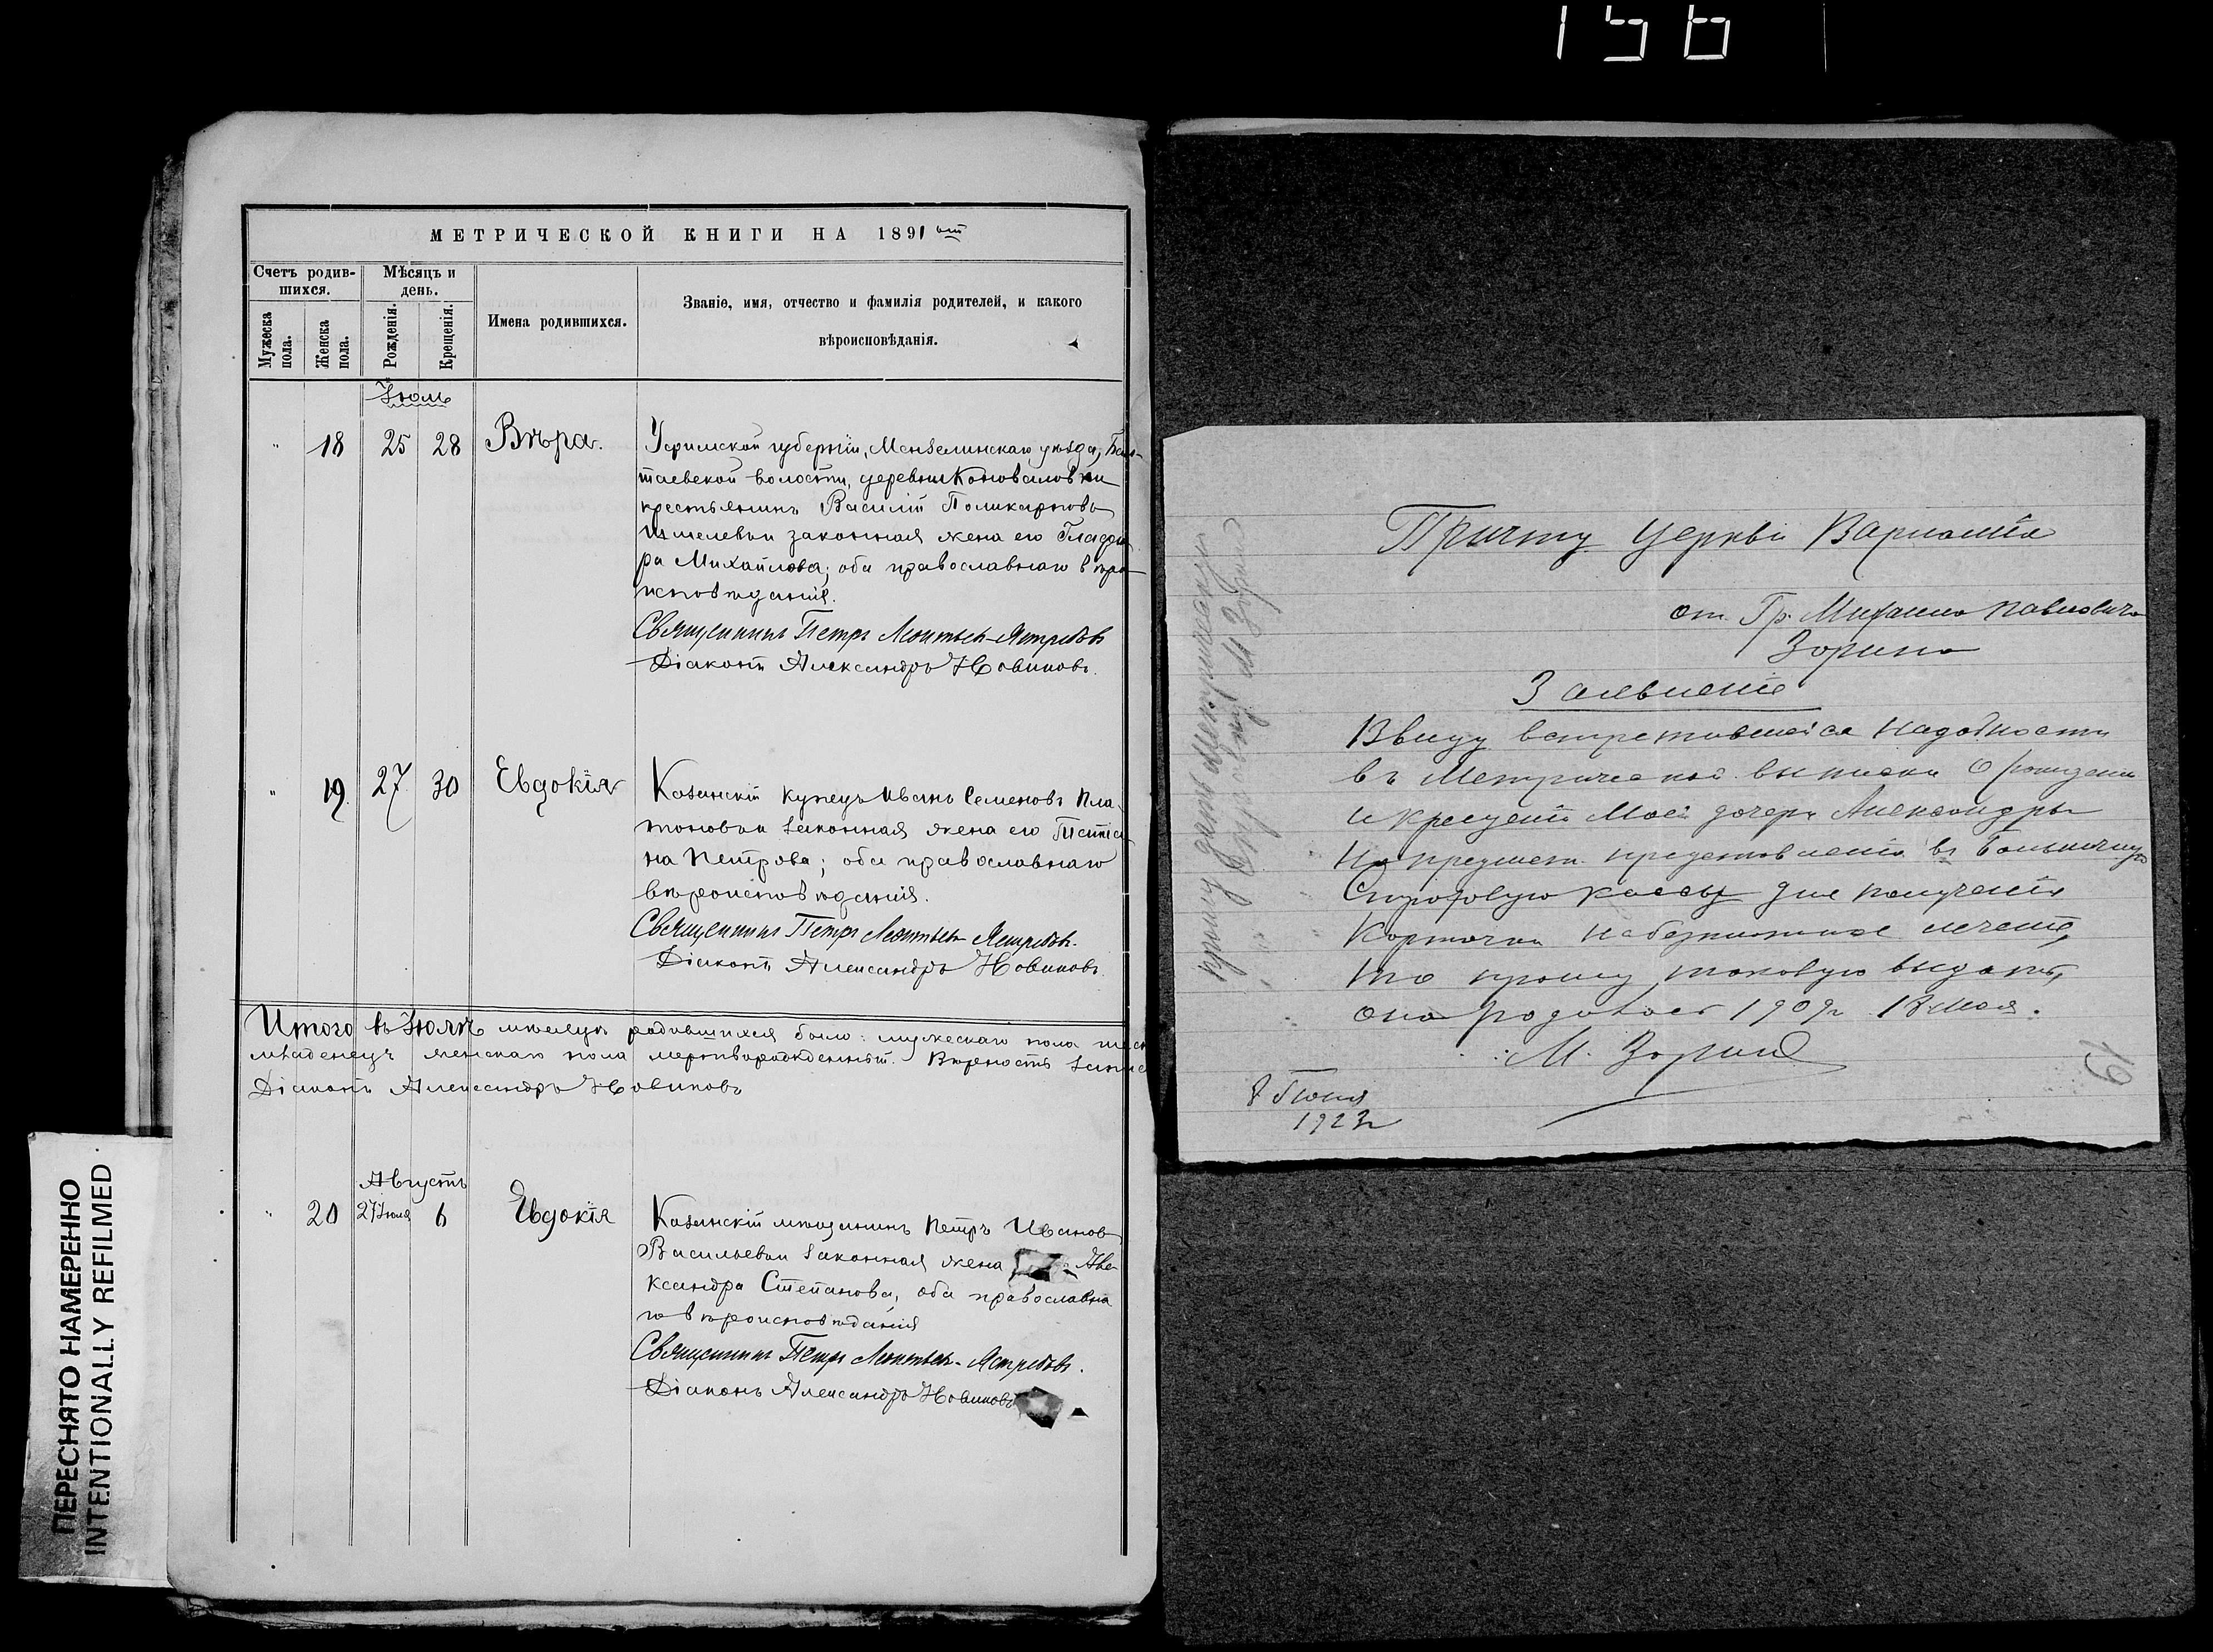 156
МЕТРИЧЕСКОЙ КНИГИ НА 1891 ый
Счетъ родив-
шихся.
Мѣсяцъ и
день.
Мужеска
пола.
Женска
пола.
Рожденія.
Крещенія.
Имена родившихся.
Званіе, имя, отчество и фамилія родителей, и какого
вѣроисповѣданія.
Іюль
" 18 25 28 Вѣра.
Уфимской губерніи, Мензелинскаго уѣзда,
волости, деревни Коноваловки
крестьянинъ Василій Поликарповъ
законная жена его Глафи
ра Михайлова; оба православнаго вѣро
исповѣданія.
Священникъ Петръ Леонтьев-Ястребовъ
Діаконъ Александръ Новиковъ.
" 19. 27. 30 Евдокія
Казанскій купецъ Иванъ Семеновъ Пла
тоновъ и законная жена его Татіа
на Петрова; оба православнаго
вѣроисповѣданія.
Священникъ Петръ Леонтьев-Ястребовъ.
Діаконъ Александръ Новиковъ.
Итого въ Іюлѣ мѣсяцѣ родившихся было: мужескаго пола
младенецъ женскаго пола мертворожденный. Вѣрность
Діаконъ Александръ Новиковъ
Августъ
" 20 27 Іюля 6 Евдокія
Казанскій мѣщанинъ Петръ Иванов
Васильевъ и законная жена Але
ксандра Степанова, оба православна
го вѣроисповѣданія
Священникъ Петръ Леонтьев-Ястребовъ.
Діаконъ Александръ Новиковъ
ПЕРЕСНЯТО НАМЕРЕННО
INTENTIONALLY REFILMED
Причту Церкви Варламія
от Гр. Михаила Павловича
Зорина
Заявленіе
Ввиду встретившейся надобности
въ Метрической выписки О рождении
и крещеніи Моей дочери Александры
На предмет представленія въ Больничную
Страховую кассу для получения
Карточки на безплатное лечение,
то прошу таковую выдать,
она родилась 1909 г 18 мая.
М. Зорин
8 Июня
1923 г
прошу дать Метрическую
19